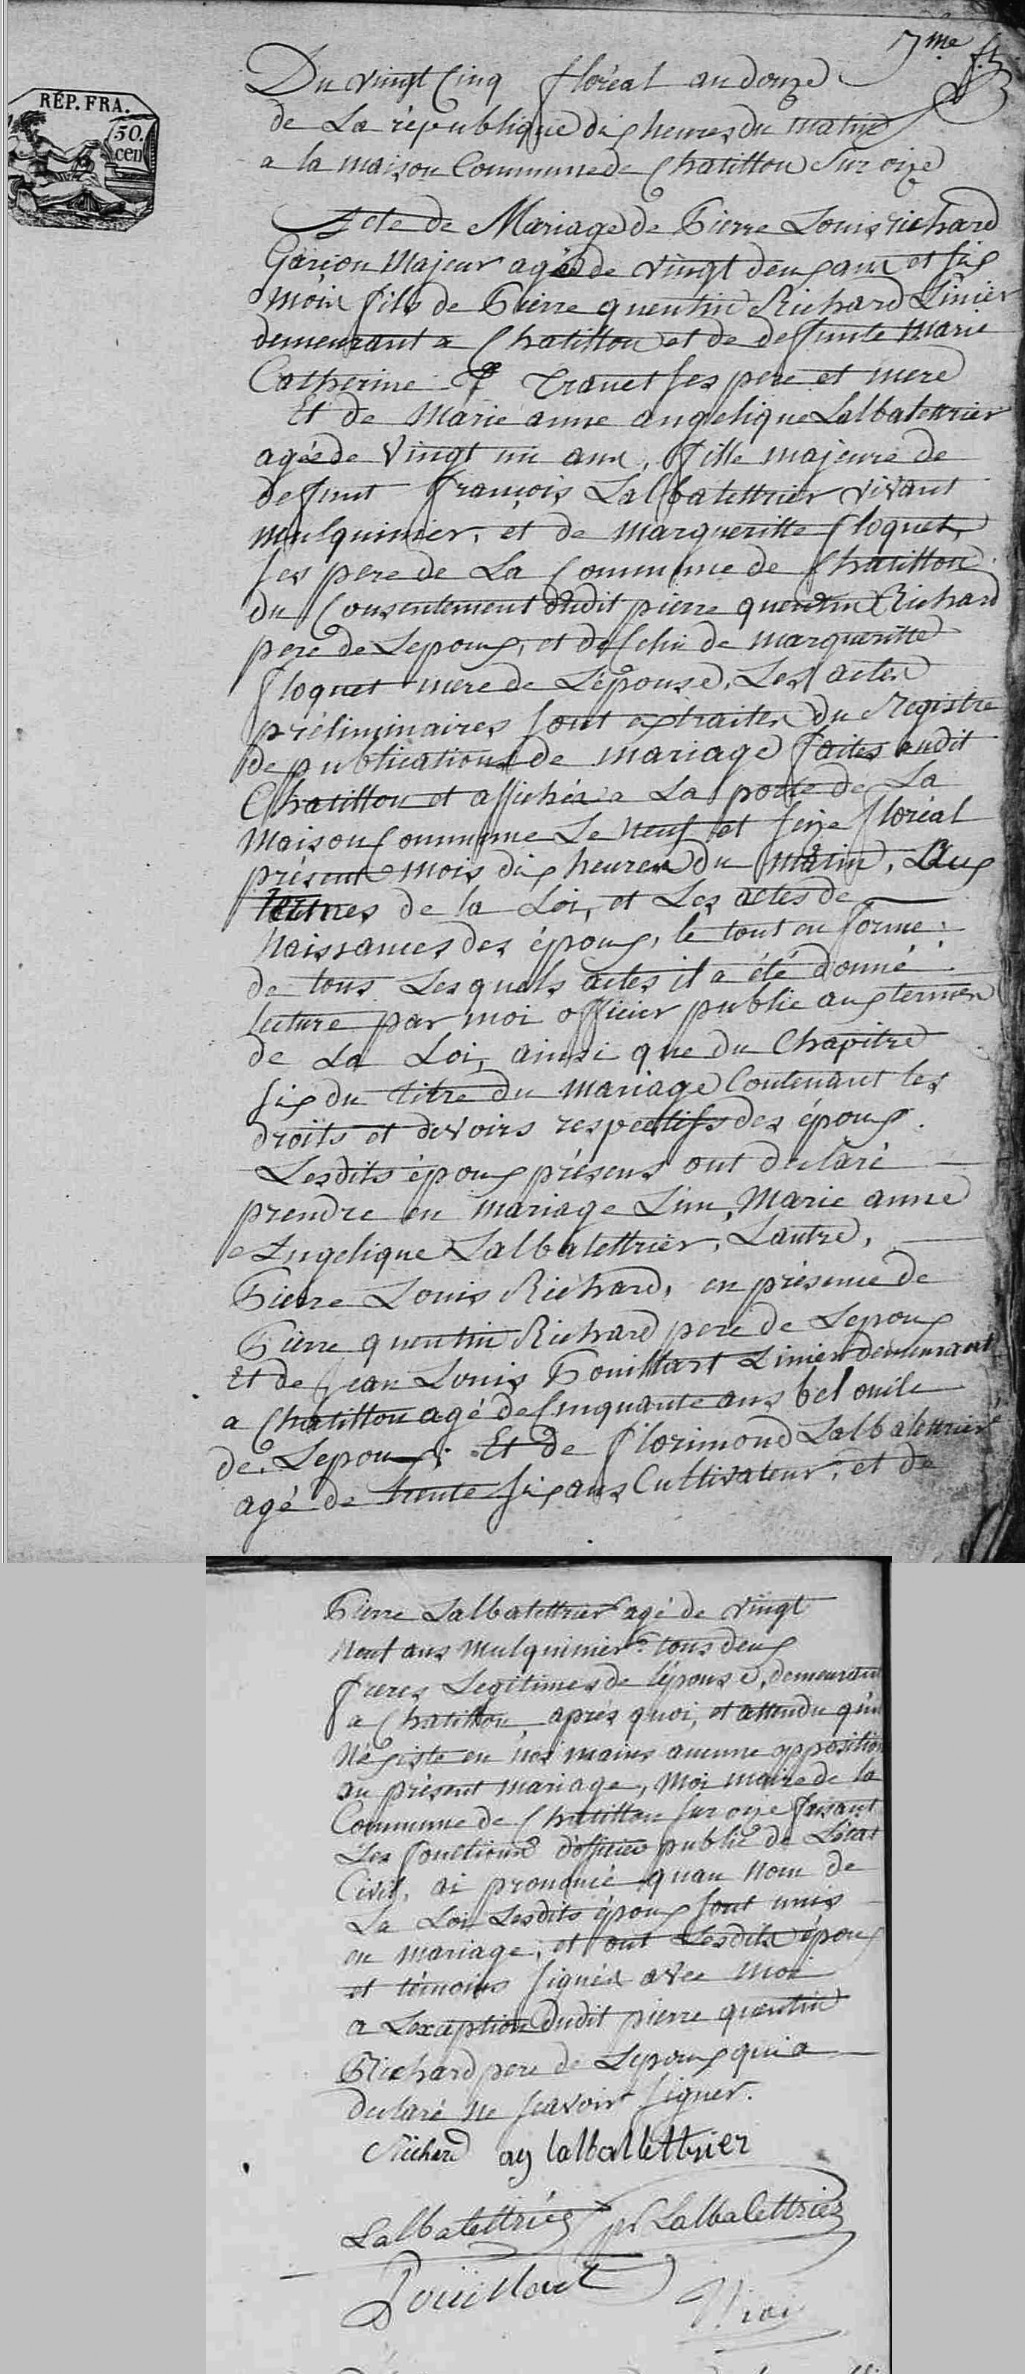 17me
RÉP. FRA.
50.
cen
Du vingt Cinq floréal an douze
de La république dix heures du matin
a la maison Commune de Chatillon Sur oize
Acte de Mariage de Pierre Louis richard
Garçon Majeur agé de vingt deux ans et six
mois fils de Pierre quentin Richard Linier
demeurant a Chatillon et de deffunte Marie
Catherine Travet ses pere et mere
Et de Marie anne angelique Lalbalettrier
agée de vingt un ans, fille majeure de
deffunt François Lalbalettrier vivant
mulquinier, et de margueritte Cloquet,
ses pere de La Commune de Chatillon
du Consentement dudit pierre quentin Richard
pere de Lepoux, et de Celui de margueritte
Cloquet mere de L'épouse. Les actes
préliminaires sont extraites du Registre
de publications de mariage faites audit
Chatillon et affichés a La porte de La
Maison Commune Le neuf et seize floréal
présent mois dix heures du matin, Aux
termes de la Loi, et Les actes de
Naissances des époux, le tout en forme:
de tous Lesquels actes il a été donné
lecture par moi officier public aux termes
de La Loi, ainsi que du Chapitre
six du titre du mariage Contenant les
droits et devoirs respectifs des époux.
Lesdits époux présens ont déclaré
prendre en mariage L'un, Marie anne
Angelique Lalbalettrier, Lautre,
Pierre Louis Richard, en présence de
Pierre quentin Richard pere de Lepoux
Et de Jean Louis Pouillart Linier demeurant
a Chatillon agé de Cinquante ans bel oncle
de Lepoux; Et de Florimond Lalbalettrier
agé de trente six ans Cultivateur, et de
Pierre Lalbalettrier agé de vingt
neuf ans mulquinier: tous deux
freres Legitimes de l'épouse, demeurant
a Chatillon, après quoi, et attendu qu'il
N'existe en nos mains aucune opposition
au présent mariage, Moi maire de la
Commune de Chatillon sur oize faisant
Les fonctions d'officier public de L'état
Civil, ai prononcé quau Nom de
La Loi Lesdits époux sont unis
en mariage, et ont Lesdits époux
et témoins signés avec moi
a Lexception dudit pierre quentin
Richard pere de Lepoux qui a
déclaré ne scavoir signer.
Richard ag lalballettrier
Lalbalettrier pr Lalbalettrier
Pouillart